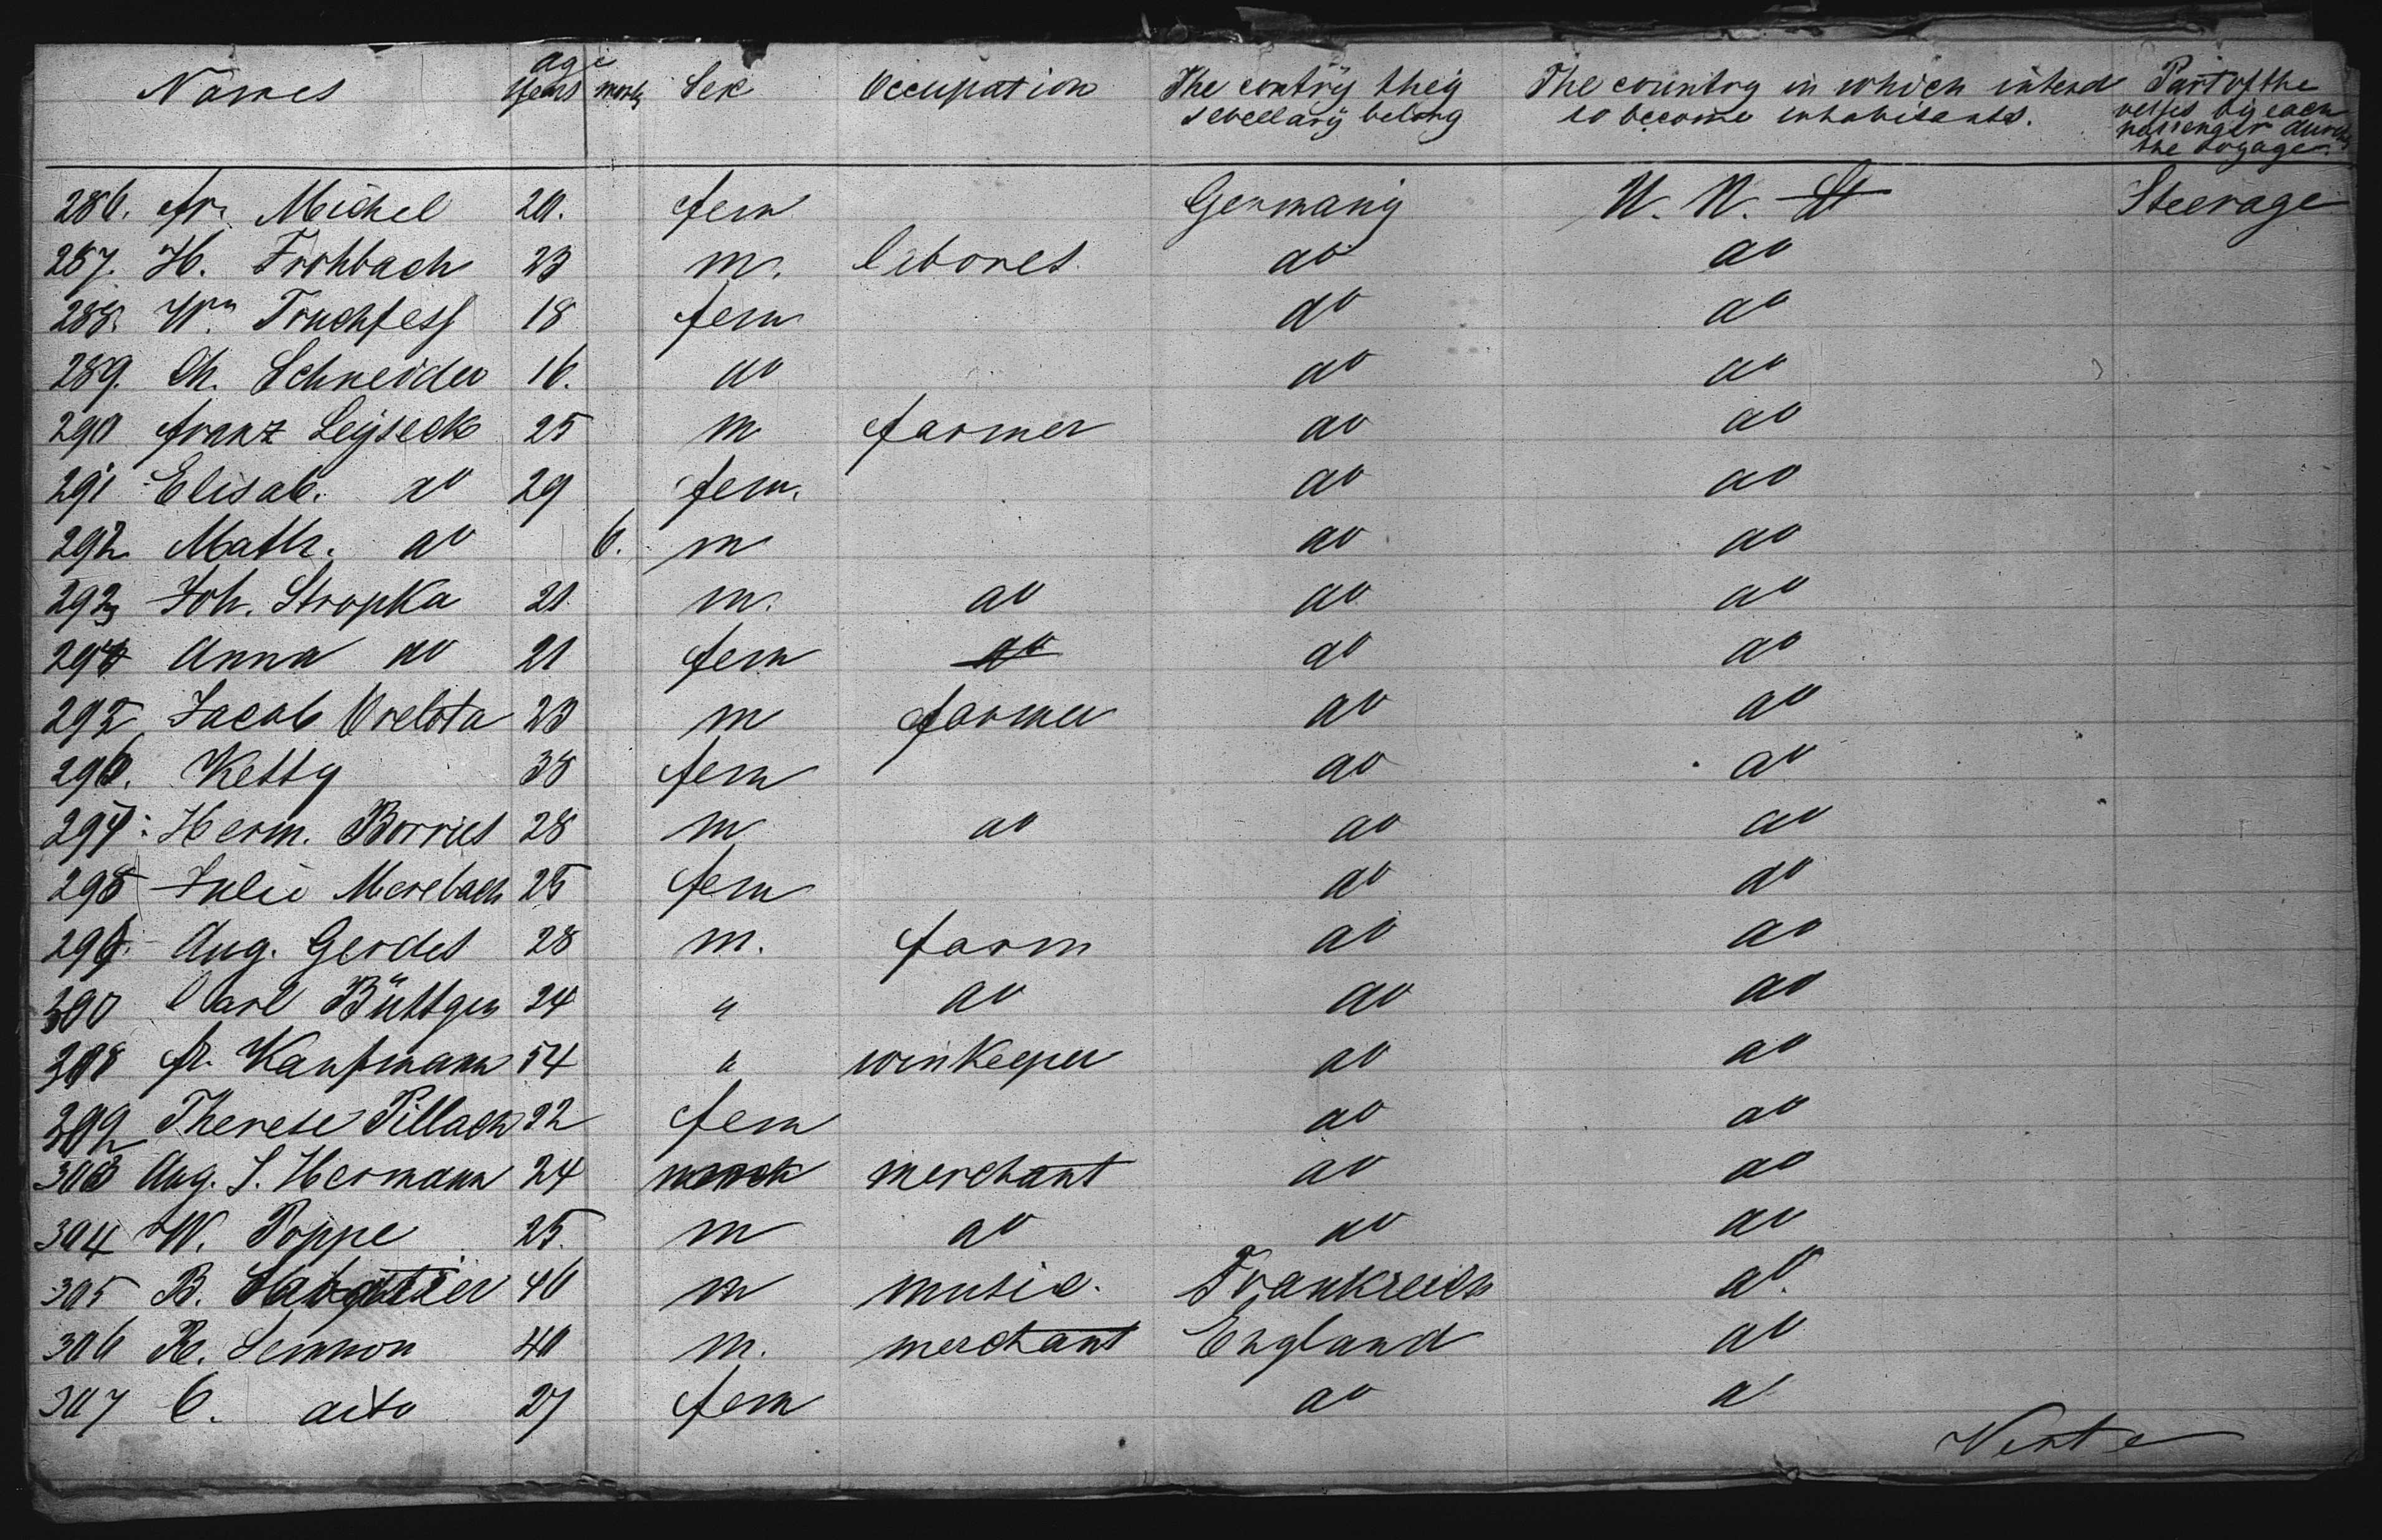 Names age years month Sex Occupation The contry they sevellary belong The country in which intend to become inhabitants. Part of the vesses by each passenger during the voyage
286. fr. Michel 20. fem Germany U. N. St Steerage
287. H. Frohbach 23 m. labores do do
288. Wm Truchfess 18 fem do do
289. Ch. Schneider 16. do do do
290 franz Leyseck 25 m farmer do do
291 Elisab. do 29 fem. do do
292 Math. do 6. m do do
293 Joh. Stropka 21 m. do do do
294 Anna do 21 fem do do do
295 Jacob Orelota 23 m farmer do do
296. Ketty 38 fem do do
297. Herm. Borries 28 m do do do
298 Julie Merebach 25 fem do do
299. Aug. Gerdes 28 m. farm do do
300 Carl Büttgen 24 " do do do
fr. Kaufmann 54 " winkeeper do do
Therese Pillach 22 fem do do
303 Aug. S. Hermann 24 merchant do do
304 W. Poppe 25. m do do do
305 B. 46 m music. Frankreich do.
306 R. Lemmon 40 m. merchant England do
307 C. dito 27 fem do d